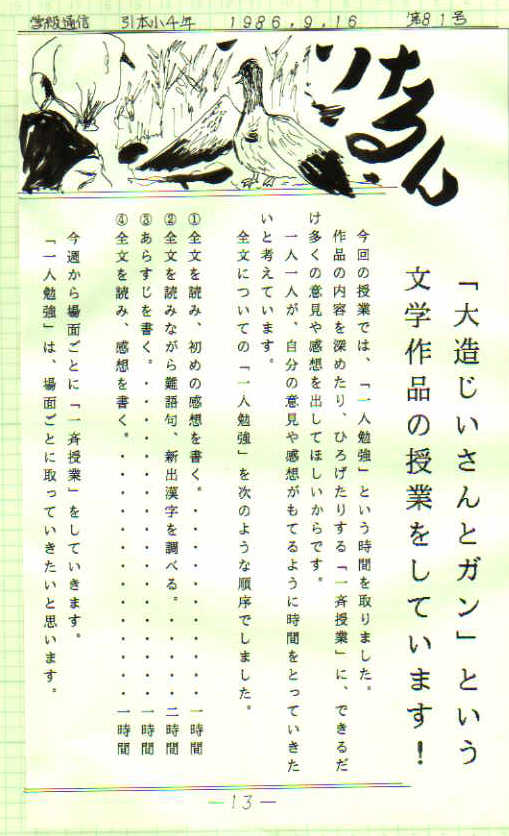 学級通信 引本小4年 1986.9.16 第81号
けろんけろん
「大造じいさんとガン」という
文学作品の授業をしています！
今回の授業では、「一人勉強」という時間を取りました。
作品の内容を深めたり、ひろげたりする「一斉授業」に、できるだ
け多くの意見や感想を出してほしいからです。
一人一人が、自分の意見や感想がもてるように時間をとっていきた
いと考えています。
全文についての「一人勉強」を次のような順序でしました。
①全文を読み、初めの感想を書く。・・・・・・・・・・一時間
②全文を読みながら難語句、新出漢字を調べる。・・・・二時間
③あらすじを書く。・・・・・・・・・・・・・・・・・一時間
④全文を読み、感想を書く。・・・・・・・・・・・・・一時間
今週から場面ごとに「一斉授業」をしていきます。
「一人勉強」は、場面ごとに取っていきたいと思います。
－13－